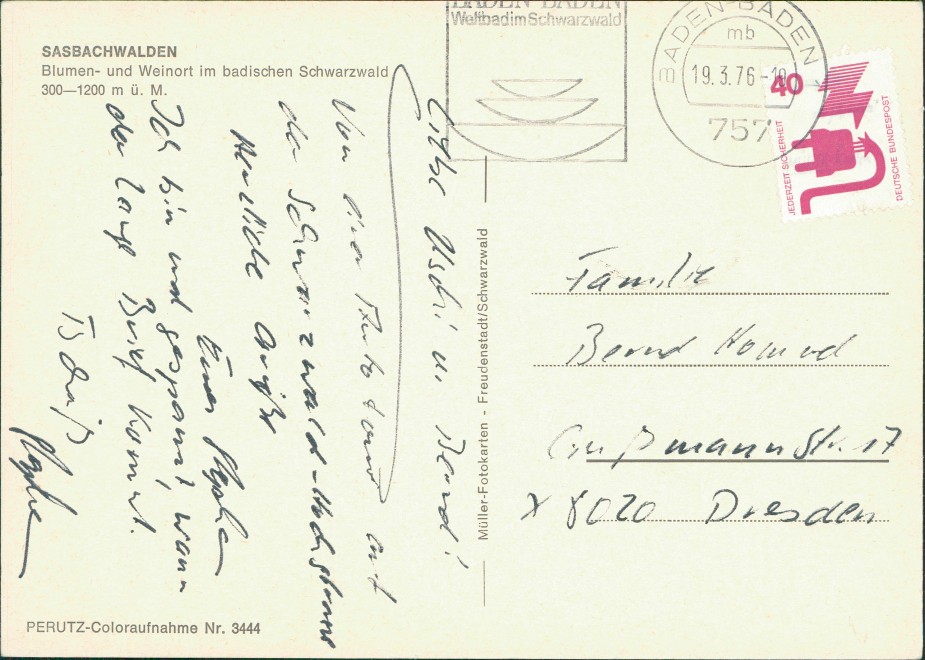 SASBACHWALDEN
Blumen- und Weinort im badischen Schwarzwald
300—1200 m ü. M.
BADEN-BADEN
Weltbad im Schwarzwald
BADEN-BADEN
mb
19.3.76-19
757
40
JEDERZEIT SICHERHEIT
DEUTSCHE BUNDESPOST
Liebe Uschi u. Bernd!
Von der Autotour auf
der Schwarzwald-Hochstrasse
Herzliche Grüße
Eure
Ich bin mal gespannt, wann
der lange Brief kommt.
Familie
Bernd
str. 17
X 8020 Dresden
Müller-Fotokarten - Freudenstadt/Schwarzwald
PERUTZ-Coloraufnahme Nr. 3444